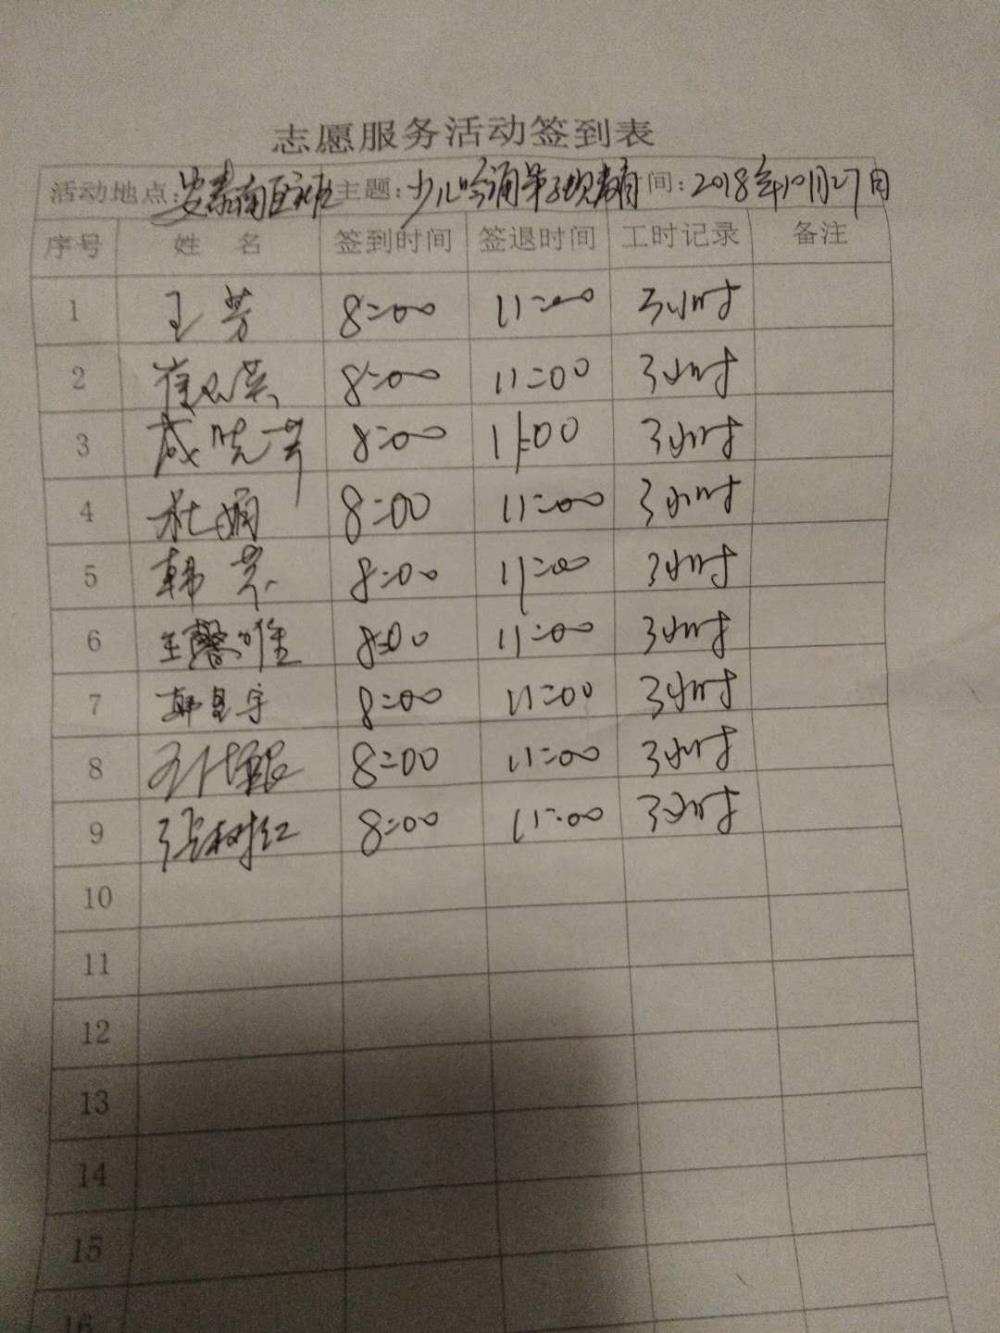 志愿服务活动签到表
活动地点:安泰南区 主题:少儿吟诵弟子规 间:2018年10月27日
序号 姓 名 签到时间 签退时间 工时记录 备注
1 王芳 8:00 11:00 3小时
2 崔 英 8:00 11:00 3小时
3 晓芳 8:00 11:00 3小时
4 杜娟 8:00 11:00 3小时
5 韩芳 8:00 11:00 3小时
6 王馨唯 8:00 11:00 3小时
7 宇 8:00 11:00 3小时
8 8:00 11:00 3小时
9 张树红 8:00 11:00 3小时
10
11
12
13
14
15
16